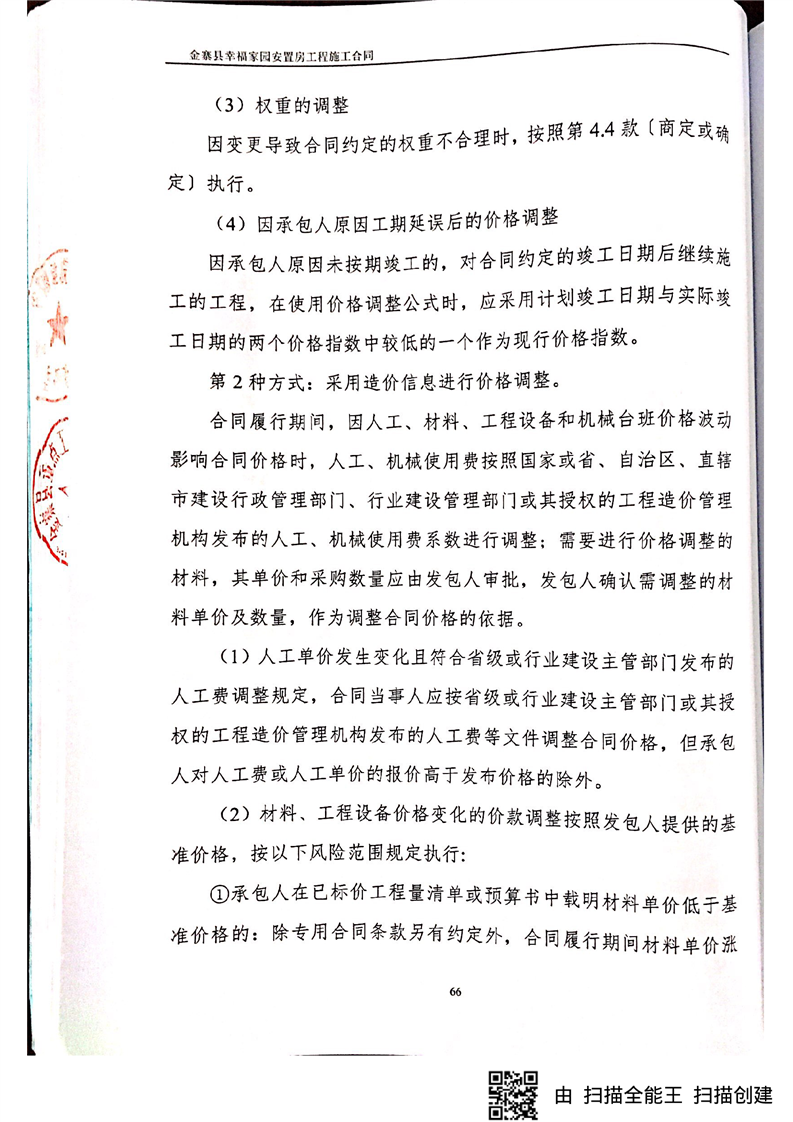 金寨县幸福家园安置房工程施工合同
（3）权重的调整
因变更导致合同约定的权重不合理时，按照第 4.4 款〔商定或确
定〕执行。
（4）因承包人原因工期延误后的价格调整
因承包人原因未按期竣工的，对合同约定的竣工日期后继续施
工的工程，在使用价格调整公式时，应采用计划竣工日期与实际竣
工日期的两个价格指数中较低的一个作为现行价格指数。
第 2 种方式：采用造价信息进行价格调整。
合同履行期间，因人工、材料、工程设备和机械台班价格波动
影响合同价格时，人工、机械使用费按照国家或省、自治区、直辖
市建设行政管理部门、行业建设管理部门或其授权的工程造价管理
机构发布的人工、机械使用费系数进行调整；需要进行价格调整的
材料，其单价和采购数量应由发包人审批，发包人确认需调整的材
料单价及数量，作为调整合同价格的依据。
（1）人工单价发生变化且符合省级或行业建设主管部门发布的
人工费调整规定，合同当事人应按省级或行业建设主管部门或其授
权的工程造价管理机构发布的人工费等文件调整合同价格，但承包
人对人工费或人工单价的报价高于发布价格的除外。
（2）材料、工程设备价格变化的价款调整按照发包人提供的基
准价格，按以下风险范围规定执行：
①承包人在已标价工程量清单或预算书中载明材料单价低于基
准价格的：除专用合同条款另有约定外，合同履行期间材料单价涨
66
由 扫描全能王 扫描创建